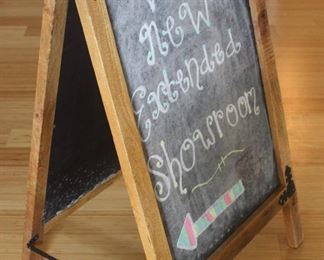 New
Extended
Showroom